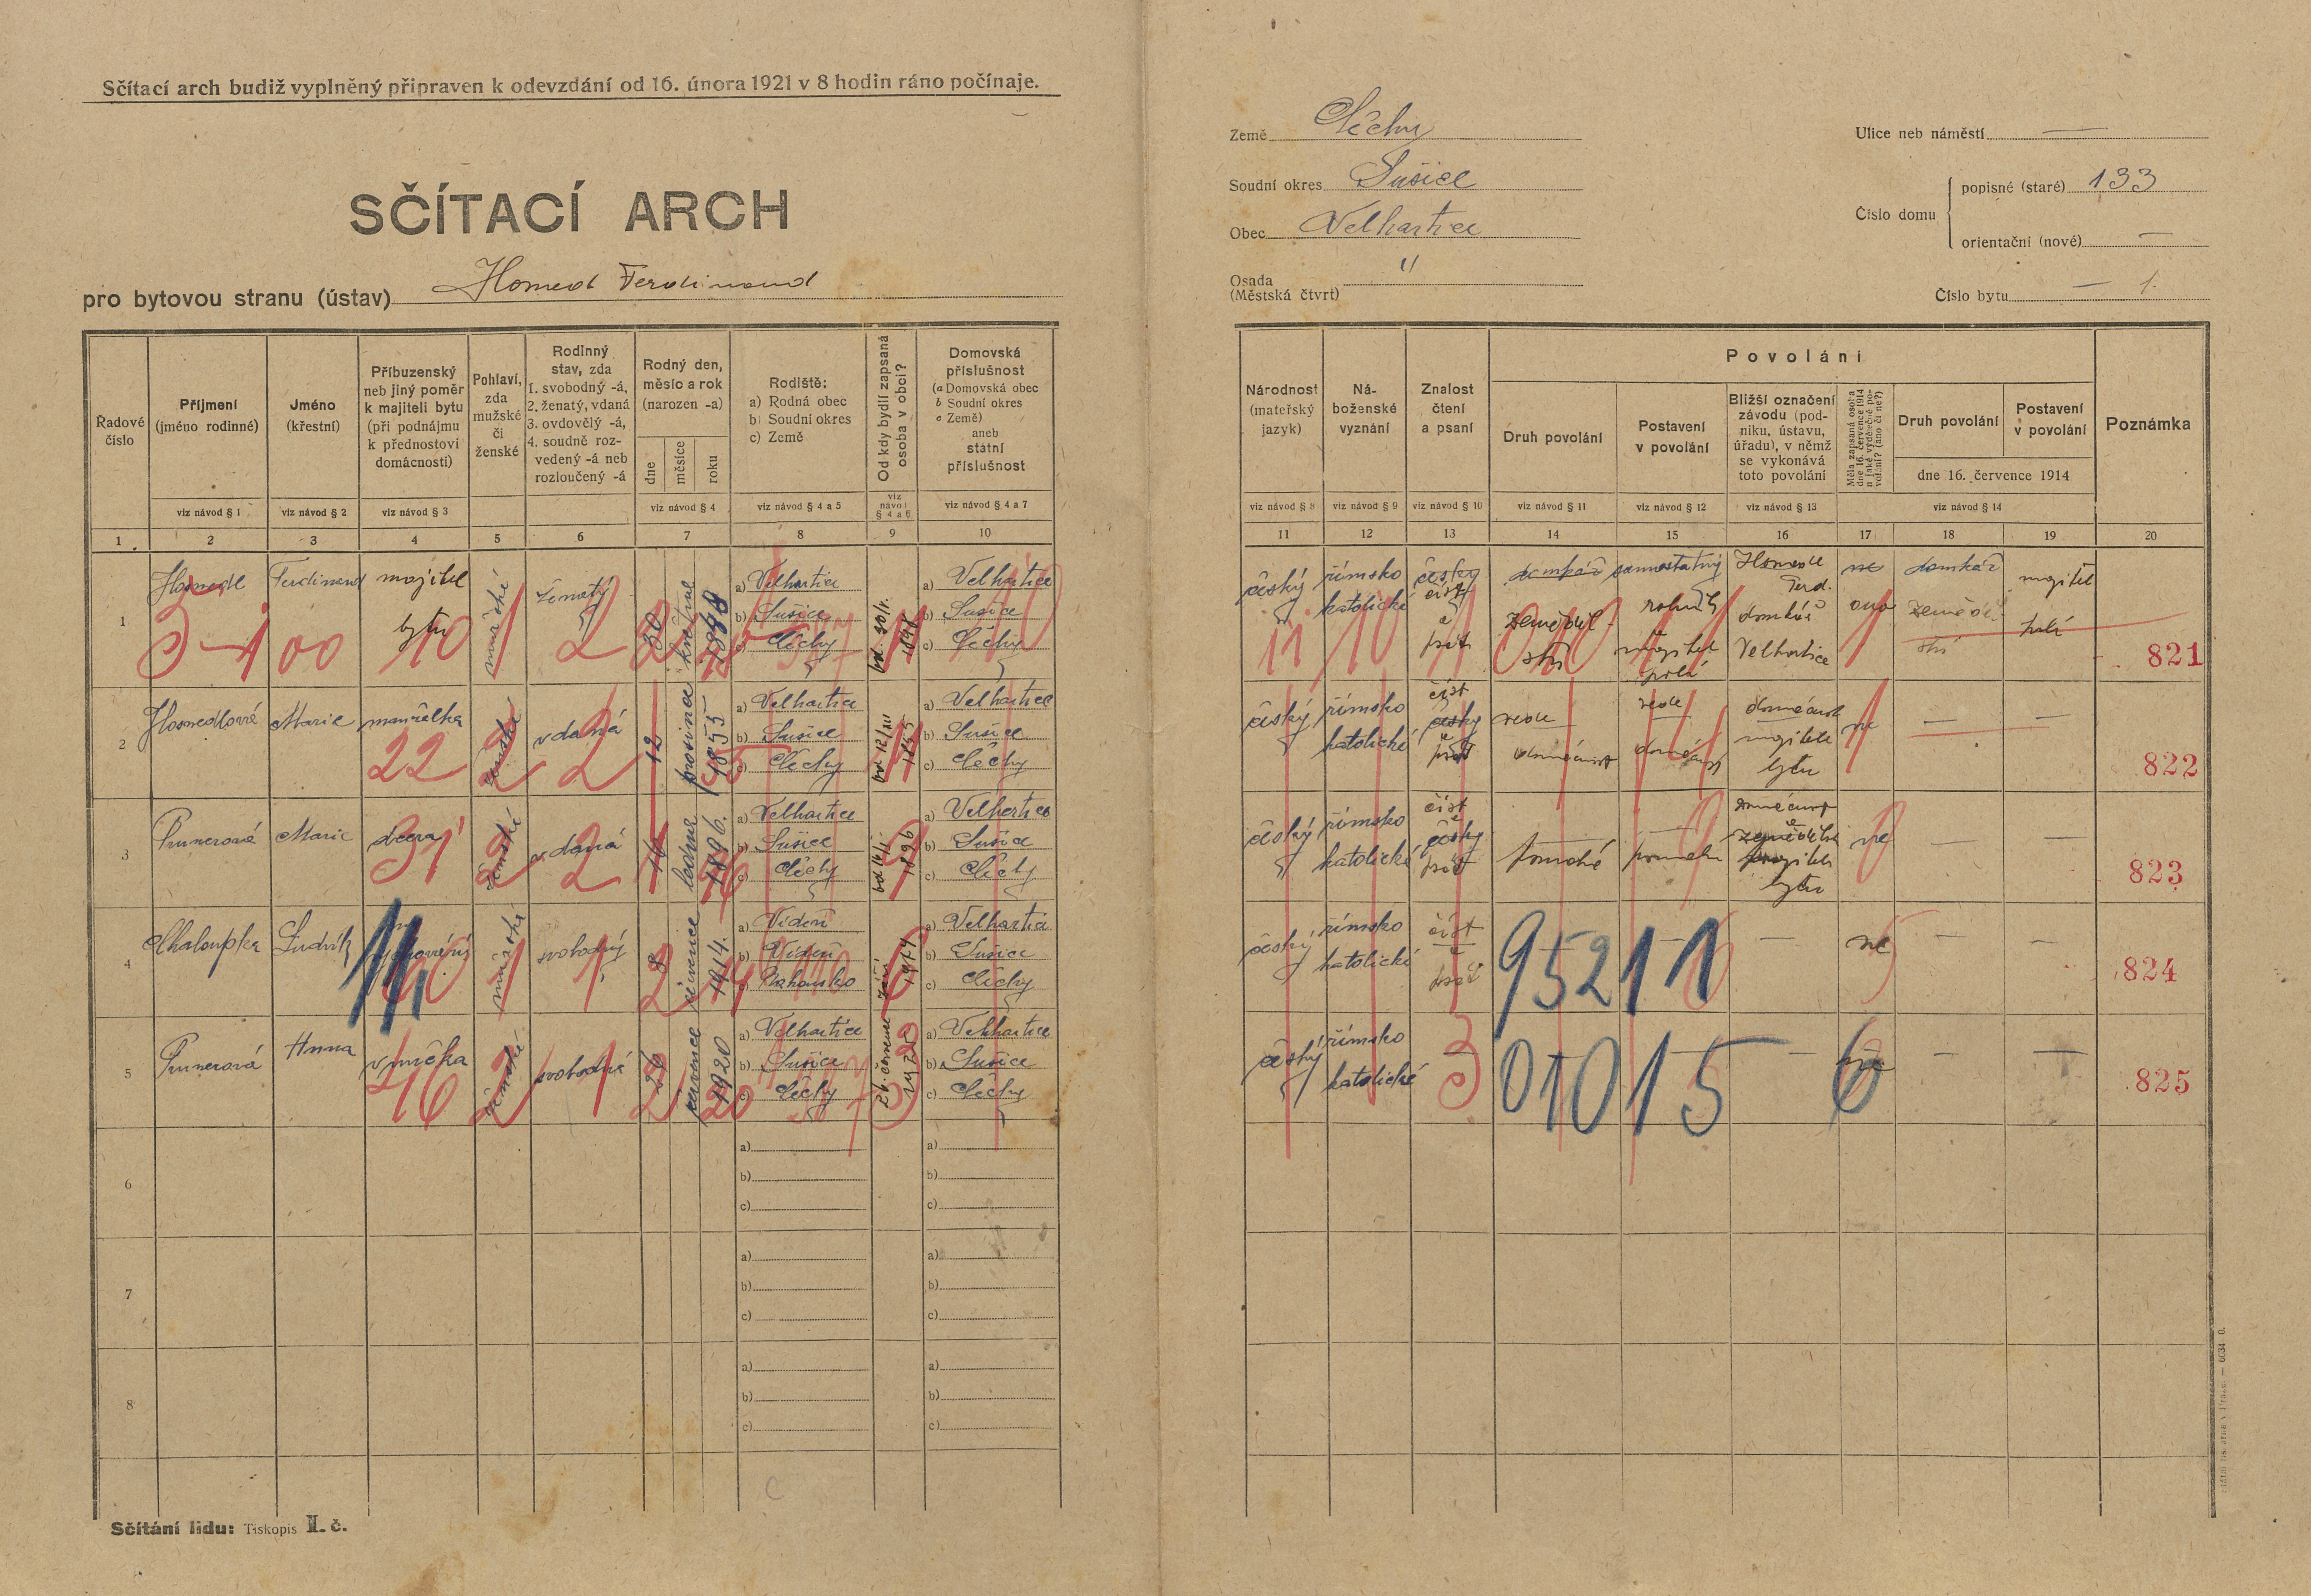 Sčítací arch budiž vyplněný připraven k odevzdání od 16. února 1921 v 8 hodin ráno počínaje.
SČÍTACÍ ARCH
pro bytovou stranu (ústav) Homedl Ferdinand
Země Čechy
Soudní okres Sušice
Obec Velhartice
Osada (Městská čtvrt) "
Ulice neb náměstí —
Číslo domu
popisné (staré) 133
orientační (nové) —
Číslo bytu — 1.
Řadové číslo
Příjmení (jméno rodinné)
Jméno (křestní)
Příbuzenský neb jiný poměr k majiteli bytu (při podnájmu k přednostovi domácnosti)
Pohlaví, zda mužské či ženské
Rodinný stav, zda 1. svobodný -á, 2. ženatý, vdaná 3. ovdovělý -á, 4. soudně rozvedený -á neb rozloučený -á
Rodný den, měsíc a rok (narozen -a)
dne měsíce roku
Rodiště: a) Rodná obec b) Soudní okres c) Země
Od kdy bydlí zapsaná osoba v obci?
Domovská příslušnost (a Domovská obec b Soudní okres c Země) aneb státní příslušnost
viz návod § 1
viz návod § 2
viz návod § 3
viz návod § 4
viz návod § 4 a 5
viz návod § 4 a 6
viz návod § 4 a 7
1 2 3 4 5 6 7 8 9 10
Národnost (mateřský jazyk)
Náboženské vyznání
Znalost čtení a psaní
Povolání
Druh povolání
Postavení v povolání
Bližší označení závodu (podniku, ústavu, úřadu), v němž se vykonává toto povolání
Měla zapsaná osoba dne 16. července 1914 nějaké výdělečné povolání? (ano či ne?)
Druh povolání
Postavení v povolání
dne 16. července 1914
Poznámka
viz návod § 8
viz návod § 9
viz návod § 10
viz návod § 11
viz návod § 12
viz návod § 13
viz návod § 14
11 12 13 14 15 16 17 18 19 20
1 Homedl Ferdinand majitel bytu mužské ženatý 30 května
a) Velhartice
b) Sušice
c) Čechy
a) Velhartice
b) Sušice
c) Čechy
český římsko katolické česky číst a psát domkář zemědělství samostatný rolník a majitel polí Homedl Ferd. domkář Velhartice ne ano domkář zemědělství majitel polí 821
2 Homedlová Marie manželka ženské vdaná 12 prosince 1855
a) Velhartice
b) Sušice
c) Čechy
od 12/XII 1855
a) Velhartice
b) Sušice
c) Čechy
český římsko katolické číst česky a psát vede domácnost vede domácnost domácnost majitele bytu ne — — 822
3 Prunerová Marie dcera ženské vdaná 16 ledna 1896.
a) Velhartice
b) Sušice
c) Čechy
od 16/1 1896
a) Velhartice
b) Sušice
c) Čechy
český římsko katolické číst a česky psát pomáhá domácnost majitele bytu ne — — 823
4 Chaloupka Ludvík mužské svobodný 8 července 1914.
a) Vídeň
b) Vídeň
c) Rakousko
září 1914
a) Velhartice
b) Sušice
c) Čechy
český římsko katolické číst a psát 95211 — ne — — 824
5 Prunerová Anna vnučka ženské svobodná 26 července 1920
a) Velhartice
b) Sušice
c) Čechy
a) Velhartice
b) Sušice
c) Čechy
český římsko katolické — 01015 — 6 ne — — 825
6
a)
b)
c)
a)
b)
c)
7
a)
b)
c)
a)
b)
c)
8
a)
b)
c)
a)
b)
c)
Sčítání lidu: Tiskopis II. č.